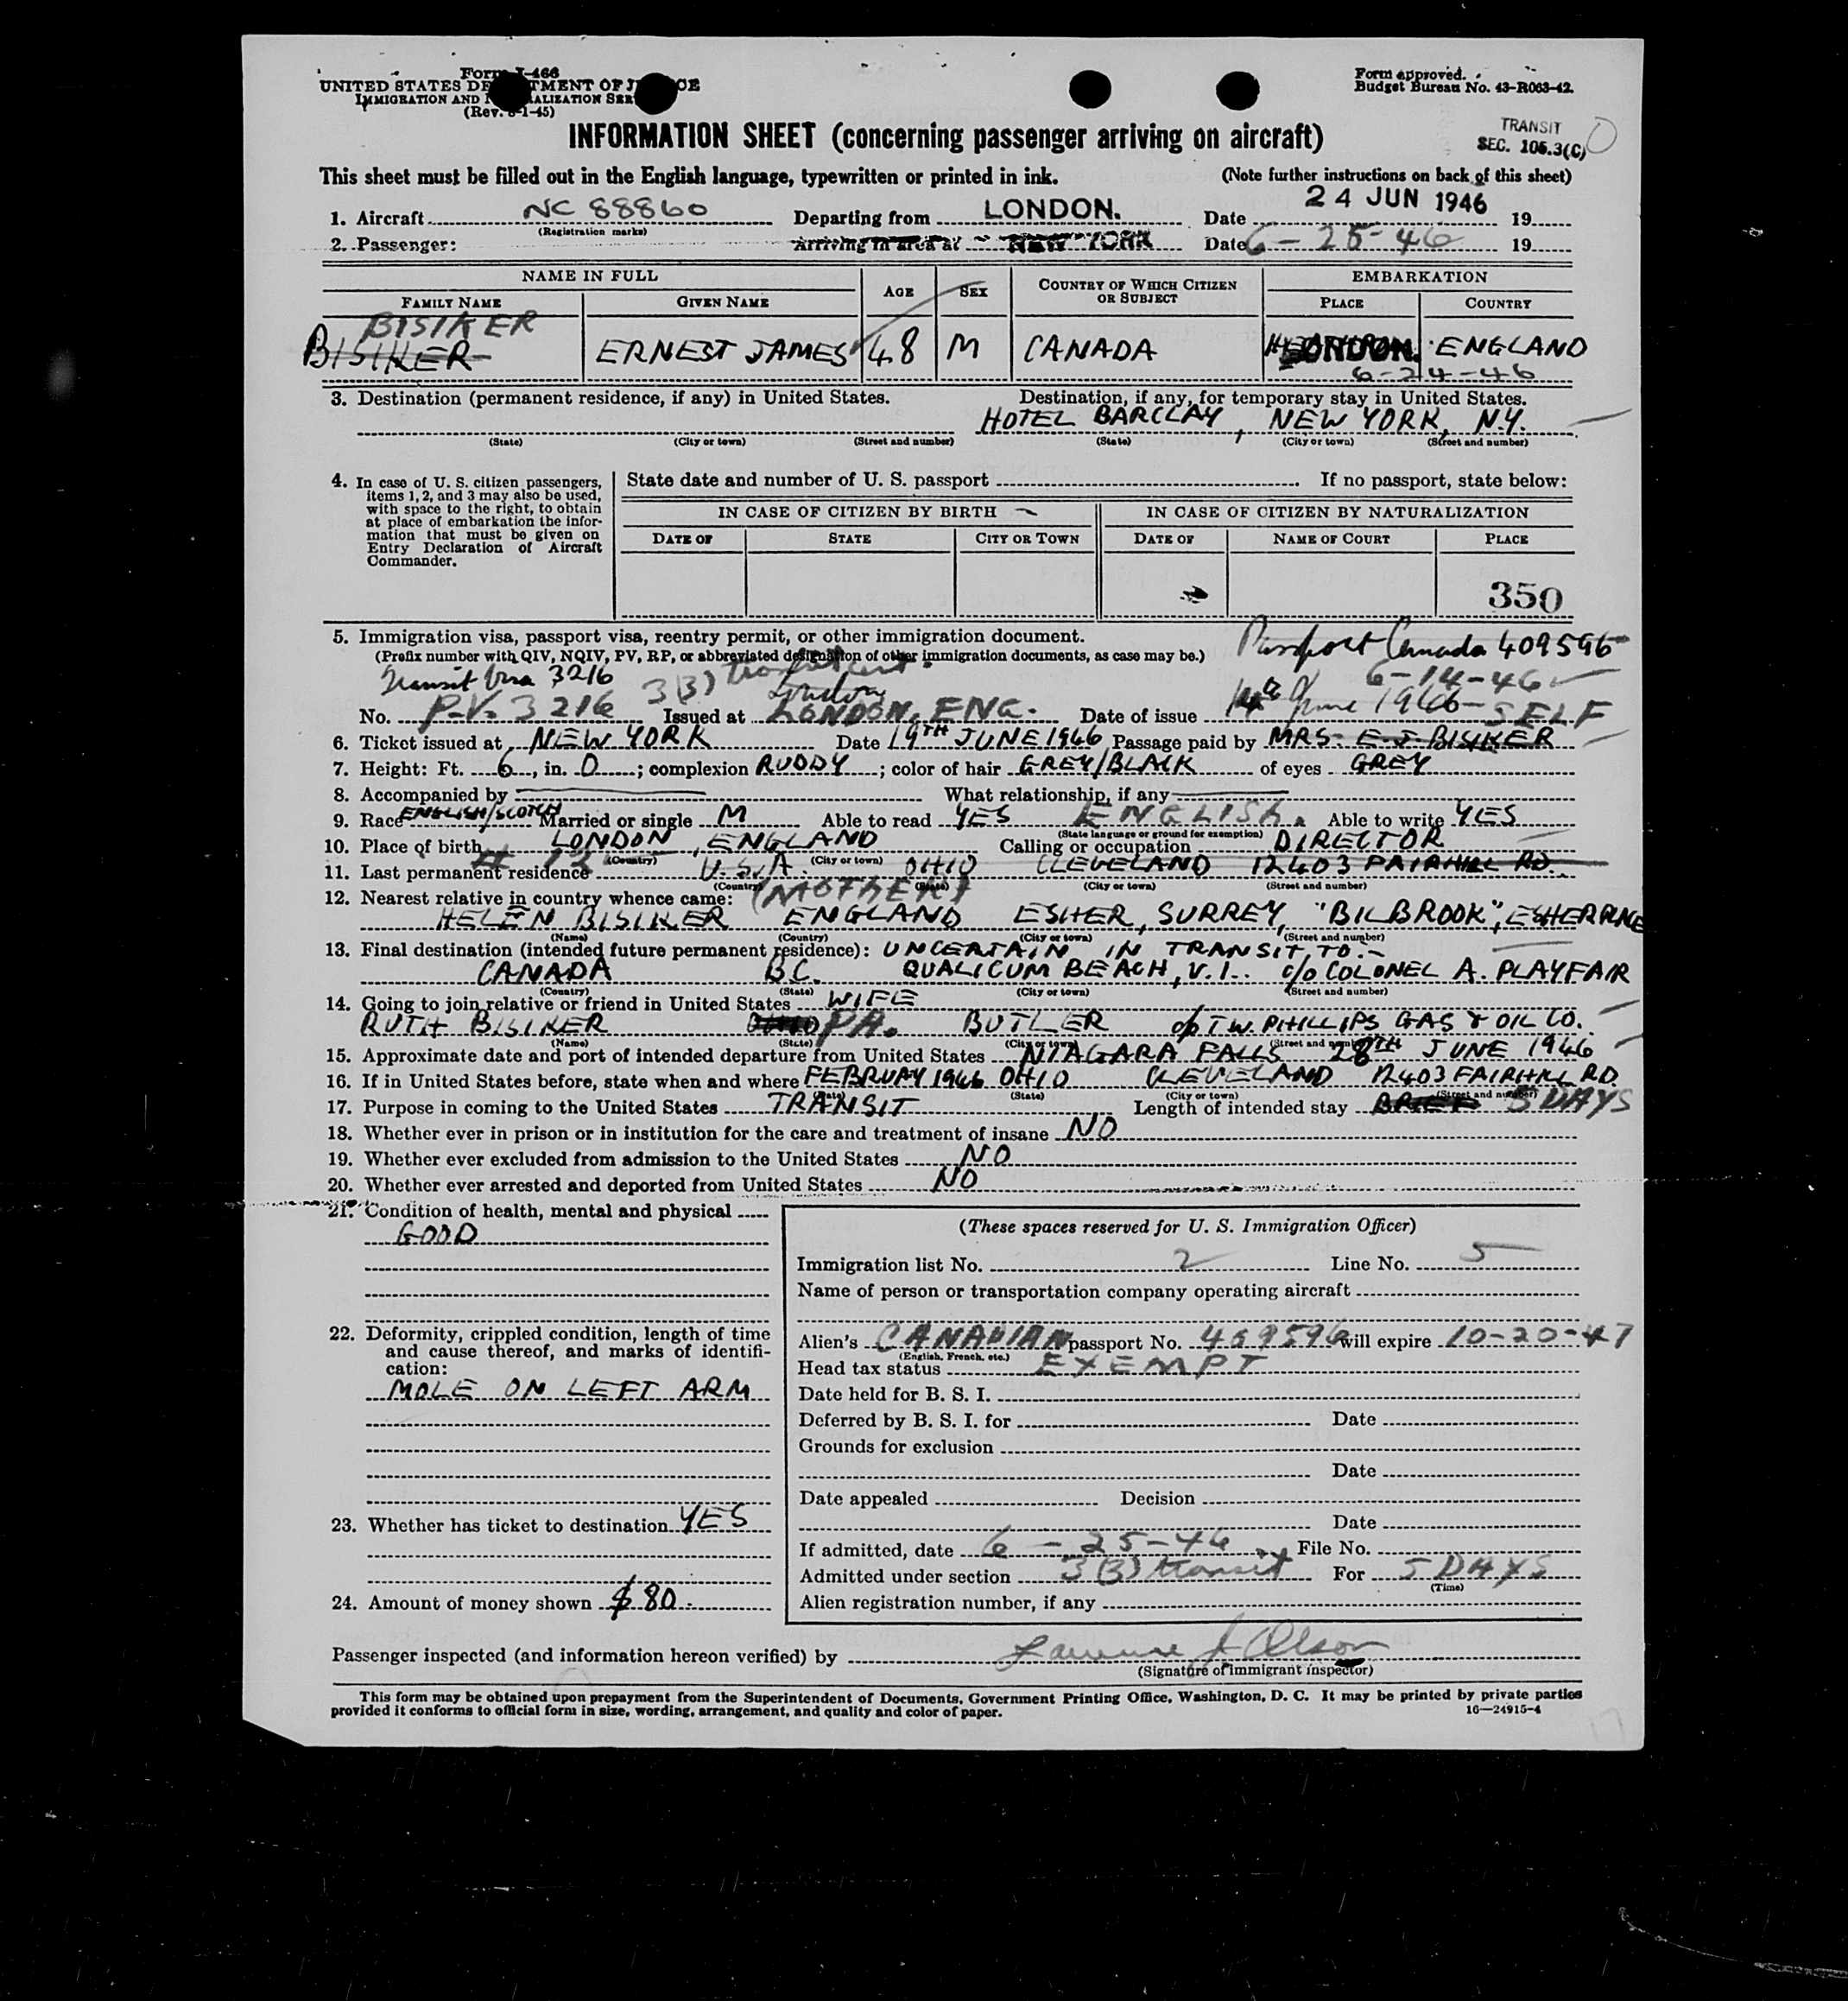 Form I-466
UNITED STATES DEPARTMENT OF JUSTICE
IMMIGRATION AND NATURALIZATION SERVICE
(Rev. 8-1-45)
Form approved.
Budget Bureau No. 43-R063-42.
TRANSIT
SEC. 105.3(C)
INFORMATION SHEET (concerning passenger arriving on aircraft)
This sheet must be filled out in the English language, typewritten or printed in ink. (Note further instructions on back of this sheet)
1. Aircraft NC 88860 Departing from LONDON. Date 24 JUN 1946 19
(Registration marks)
2. Passenger: Arriving in area at NEW YORK Date 6-25-46 19
NAME IN FULL AGE SEX COUNTRY OF WHICH CITIZEN OR SUBJECT EMBARKATION
FAMILY NAME GIVEN NAME PLACE COUNTRY
BISIKER
BISIKER ERNEST JAMES 48 M CANADA LONDON. ENGLAND
6-24-46
3. Destination (permanent residence, if any) in United States. Destination, if any, for temporary stay in United States.
HOTEL BARCLAY, NEW YORK, N.Y.
(State) (City or town) (Street and number) (State) (City or town) (Street and number)
4. In case of U. S. citizen passengers, items 1, 2, and 3 may also be used, with space to the right, to obtain at place of embarkation the information that must be given on Entry Declaration of Aircraft Commander.
State date and number of U. S. passport If no passport, state below:
IN CASE OF CITIZEN BY BIRTH IN CASE OF CITIZEN BY NATURALIZATION
DATE OF STATE CITY OR TOWN DATE OF NAME OF COURT PLACE
350
5. Immigration visa, passport visa, reentry permit, or other immigration document. Passport Canada 409596
(Prefix number with QIV, NQIV, PV, RP, or abbreviated designation of other immigration documents, as case may be.)
Transit Visa 3216 3(3) transit cert London 6-14-46
No. P.V. 3216 Issued at LONDON, ENG. Date of issue 14th of June 1946 SELF
6. Ticket issued at NEW YORK Date 19TH JUNE 1946 Passage paid by MRS. E.J. BISIKER
7. Height: Ft. 6, in. 0; complexion RUDDY; color of hair GREY/BLACK of eyes GREY
8. Accompanied by What relationship, if any
9. Race ENGLISH/SCOTCH Married or single M Able to read YES ENGLISH. Able to write YES
(State language or ground for exemption)
10. Place of birth LONDON, ENGLAND Calling or occupation DIRECTOR
(Country) (City or town)
11. Last permanent residence # 12 U.S.A. OHIO CLEVELAND 12403 FAIRHILL RD.
(Country) (State) (City or town) (Street and number)
12. Nearest relative in country whence came: (MOTHER)
HELEN BISIKER ENGLAND ESHER, SURREY, "BILBROOK", ESHER PLACE
(Name) (Country) (City or town) (Street and number)
13. Final destination (intended future permanent residence): UNCERTAIN IN TRANSIT TO:-
CANADA B.C. QUALICUM BEACH, V.I. c/o COLONEL A. PLAYFAIR
(Country) (State) (City or town) (Street and number)
14. Going to join relative or friend in United States WIFE
RUTH BISIKER PA. BUTLER c/o T.W. PHILLIPS GAS & OIL CO.
(Name) (State) (City or town) (Street and number)
15. Approximate date and port of intended departure from United States NIAGARA FALLS 28TH JUNE 1946
16. If in United States before, state when and where FEBRUAY 1946 OHIO CLEVELAND 12403 FAIRHILL RD.
(Date) (State) (City or town) (Street and number)
17. Purpose in coming to the United States TRANSIT Length of intended stay BRIEF 5 DAYS
18. Whether ever in prison or in institution for the care and treatment of insane NO
19. Whether ever excluded from admission to the United States NO
20. Whether ever arrested and deported from United States NO
21. Condition of health, mental and physical
GOOD
22. Deformity, crippled condition, length of time and cause thereof, and marks of identification:
MOLE ON LEFT ARM
23. Whether has ticket to destination YES
24. Amount of money shown $80.
(These spaces reserved for U. S. Immigration Officer)
Immigration list No. 2 Line No. 5
Name of person or transportation company operating aircraft
Alien's CANADIAN passport No. 409596 will expire 10-20-47
(English, French, etc.)
Head tax status EXEMPT
Date held for B. S. I.
Deferred by B. S. I. for Date
Grounds for exclusion
Date
Date appealed Decision
Date
If admitted, date 6-25-46 File No.
Admitted under section 3(3) transit For 5 DAYS
(Time)
Alien registration number, if any
Passenger inspected (and information hereon verified) by Lawrence J Olson
(Signature of immigrant inspector)
This form may be obtained upon prepayment from the Superintendent of Documents, Government Printing Office, Washington, D. C. It may be printed by private parties
provided it conforms to official form in size, wording, arrangement, and quality and color of paper. 16—24915-4